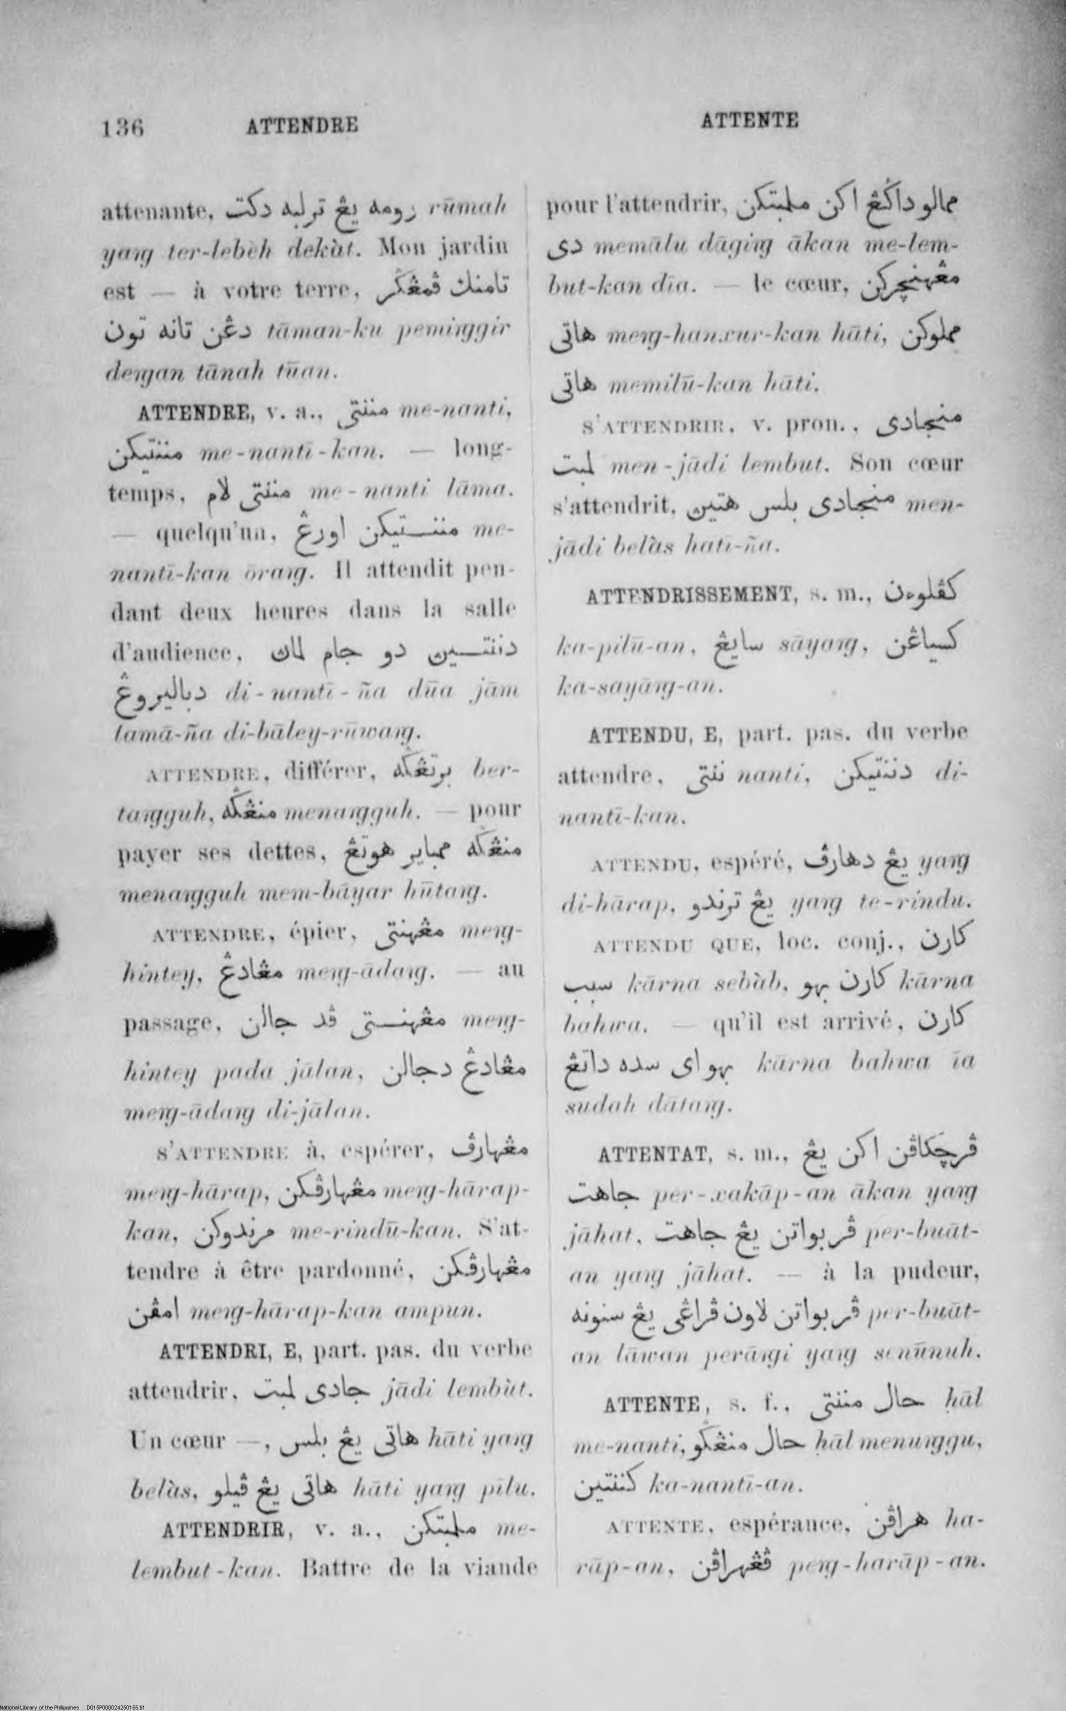 136 ATTENDRE ATTENTE
attenante, رومه يڠ ترلبه دكت rūmah
yaŋ ter-lebèh dekàt. Mon jardin
est — à votre terre, تامنك ڤمڠݢر
دڠن تانه تون tāman-ku pemiŋgir
deŋan tānah tūan.
ATTENDRE, v. a., مننتى me-nanti,
مننتيكن me-nantī-kan. — long-
temps, مننتى لام me-nanti lāma.
— quelqu'un, مننتيكن اورڠ me-
nantī-kan ōraŋ. Il attendit pen-
dant deux heures dans la salle
d'audience, دننتين دو جام لماڽ
دباليروڠ di-nantī-ña dūa jām
lamā-ña di-bāley-rūwaŋ.
ATTENDRE, différer, برتڠݢه ber-
taŋguh, منڠݢه menaŋguh. — pour
payer ses dettes, منڠݢه ممباير هوتڠ
menaŋguh mem-bāyar hūtaŋ.
ATTENDRE, épier, مڠهنتى meŋ-
hintey, مڠادڠ meŋ-ādaŋ. — au
passage, مڠهنتى ڤد جالن meŋ-
hintey pada jālan, مڠادڠ دجالن
meŋ-ādaŋ di-jālan.
S'ATTENDRE à, espérer, مڠهارڤ
meŋ-hārap, مڠهارڤكن meŋ-hārap-
kan, مرندوكن me-rindū-kan. S'at-
tendre à être pardonné, مڠهارڤكن
امڤن meŋ-hārap-kan ampun.
ATTENDRI, E, part. pas. du verbe
attendrir, جادى لمبت jādi lembùt.
Un cœur —, هاتى يڠ بلس hāti yaŋ
belàs, هاتى يڠ ڤيلو hāti yaŋ pīlu.
ATTENDRIR, v. a., ملمبتكن me-
lembut-kan. Battre de la viande
pour l'attendrir, ممالو داݢڠ اكن ملمبتكن
دى memālu dāgiŋ ākan me-lem-
but-kan dīa. — le cœur, مڠهنچركن
هاتى meŋ-hanxur-kan hāti, مملوكن
هاتى memilū-kan hāti.
S'ATTENDRIR, v. pron., منجادى
لمبت men-jādi lembut. Son cœur
s'attendrit, منجادى بلس هتين men-
jādi belàs hatī-ña.
ATTENDRISSEMENT, s. m., كڤلوءن
ka-pilū-an, سايڠ sāyaŋ, كسياڠن
ka-sayāŋ-an.
ATTENDU, E, part. pas. du verbe
attendre, ننتى nanti, دننتيكن di-
nantī-kan.
ATTENDU, espéré, يڠ دهارڤ yaŋ
di-hārap, يڠ ترندو yaŋ te-rindu.
ATTENDU QUE, loc. conj., كارن
سبب kārna sebàb, كارن بهو kārna
bahwa. — qu'il est arrivé, كارن
بهو اى سده داتڠ kārna bahwa īa
sudah dātaŋ.
ATTENTAT, s. m., ڤرچكاڤن اكن يڠ
جاهت per-xakāp-an ākan yaŋ
jāhat, ڤربواتن يڠ جاهت per-buāt-
an yaŋ jāhat. — à la pudeur,
ڤربواتن لاون ڤراڠى يڠ سنونه per-buāt-
an lāwan perāŋi yaŋ senūnuh.
ATTENTE, s. f., حال مننتى ḥāl
me-nanti, حال منڠݢو ḥāl menuŋgu,
كننتين ka-nantī-an.
ATTENTE, espérance, هراڤن ha-
rāp-an, ڤڠهراڤن peŋ-harāp-an.
National Library of the Philippines